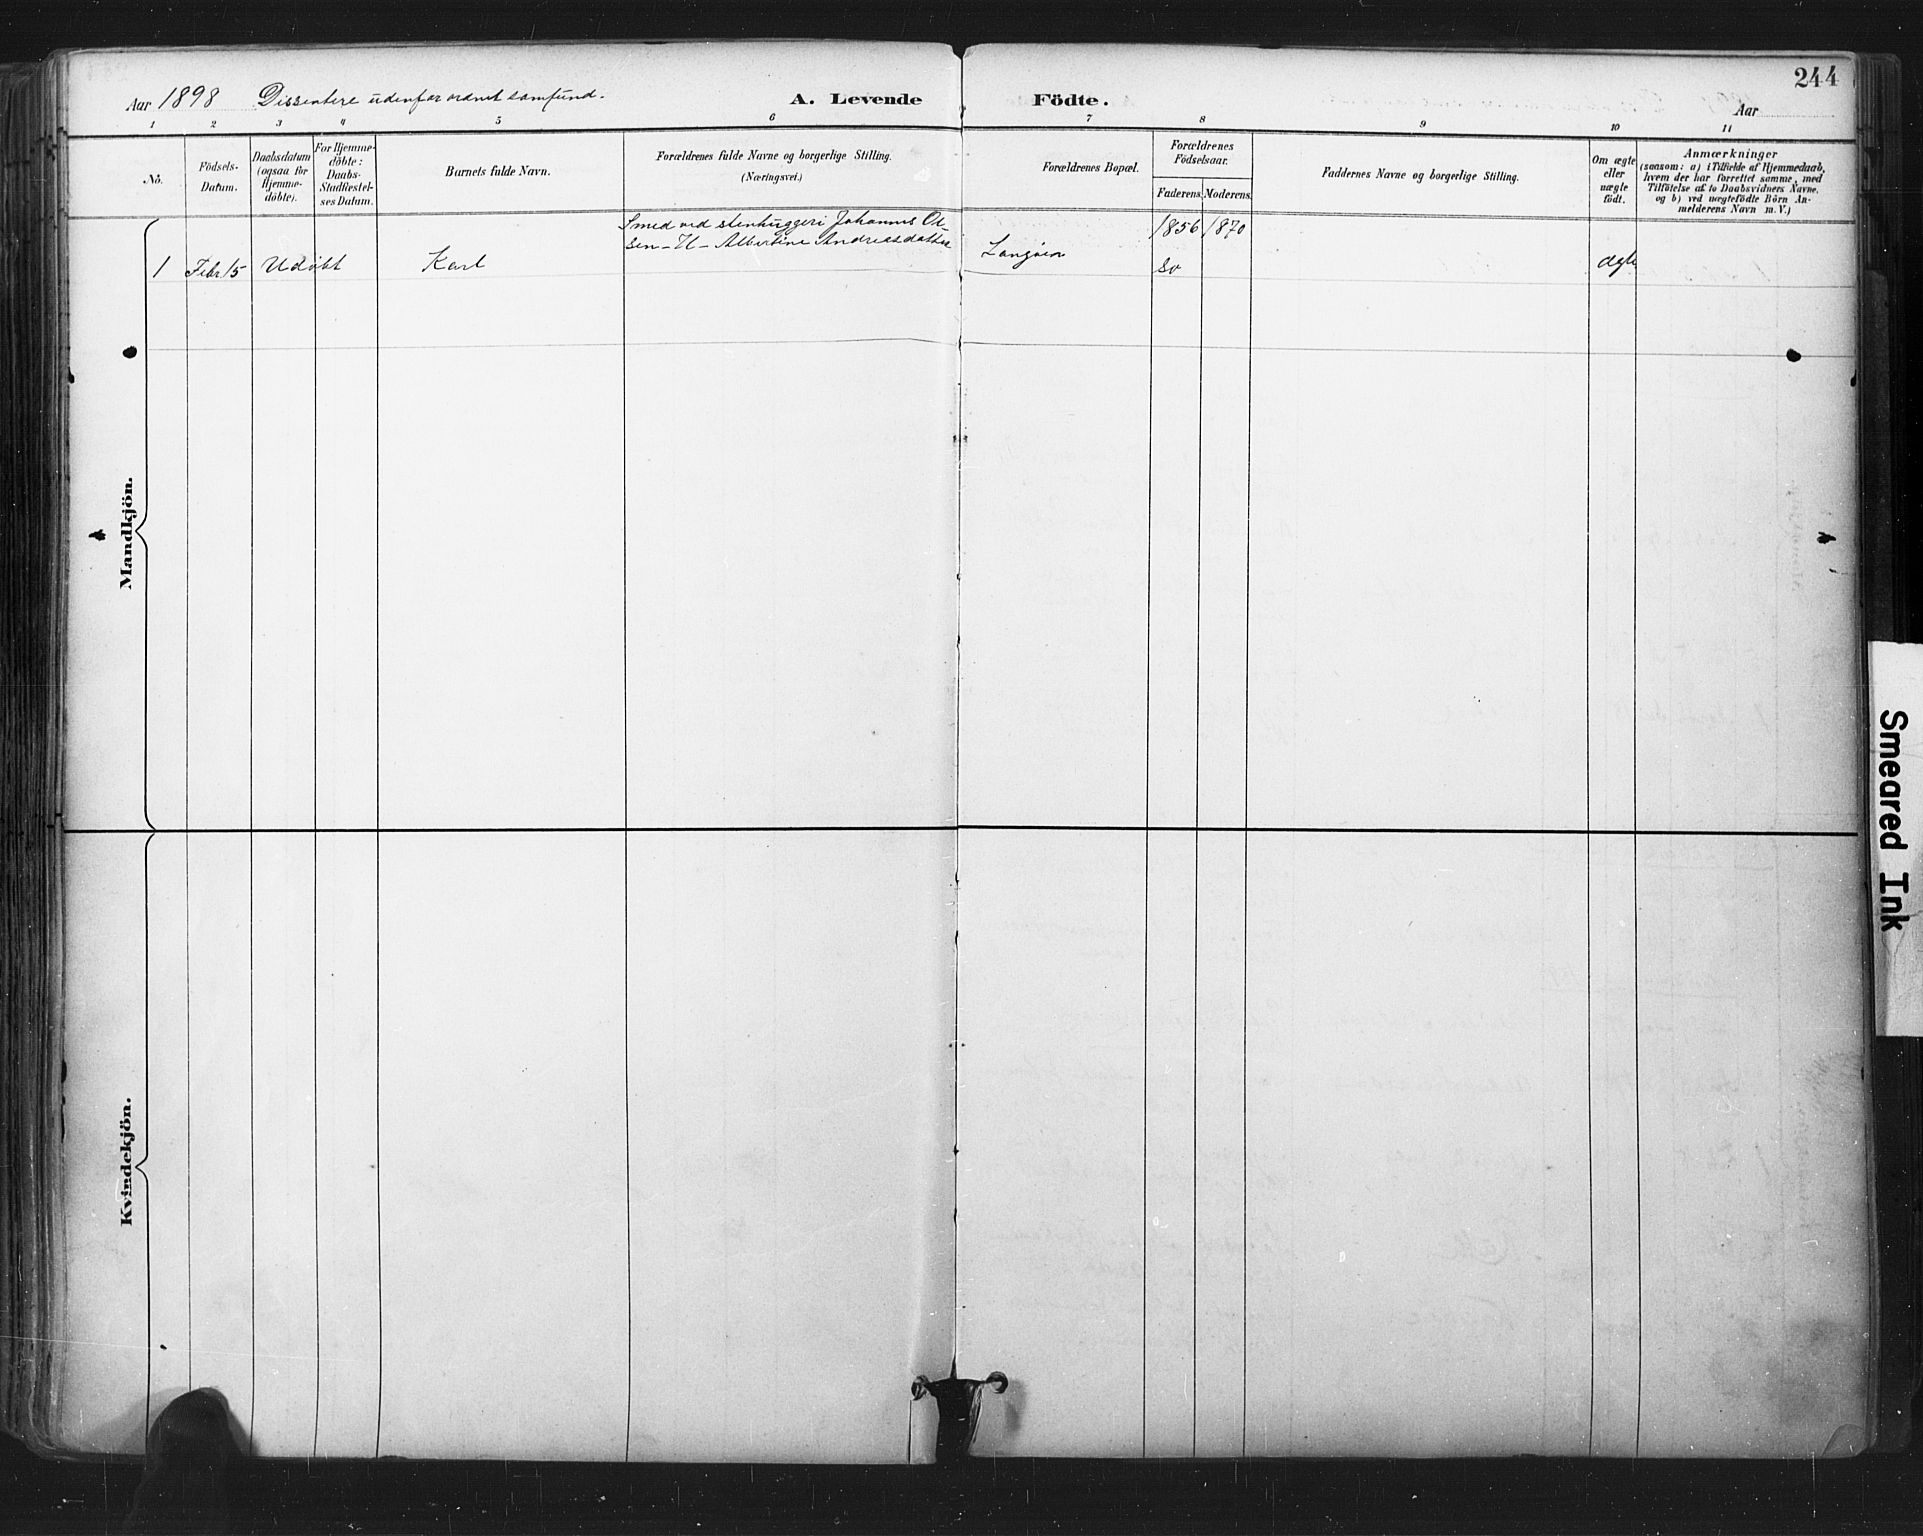 244
Aar 1898 Dissentere udenfor ordnet samfund. A. Levende Födte. Aar
1 2 3 4 5 6 7 8 9 10 11
No.
Födsels-
Datum.
Daabsdatum
(ogsaa for
Hjemme-
döbte).
For Hjemme-
döbte:
Daabs-
Stadfæstel-
ses Datum.
Barnets fulde Navn.
Forældrenes fulde Navne og borgerlige Stilling.
(Næringsvei.)
Forældrenes Bopæl.
Forældrenes
Födselsaar.
Faderens. Moderens.
Faddernes Navne og borgerlige Stilling.
Om ægte
eller
uægte
födt.
Anmærkninger
(saasom: a) i Tilfælde af Hjemmedaab,
hvem der har forrettet samme, med
Tilföielse af to Daabsvidners Navne,
og b) ved uægtefödte Börn An-
melderens Navn m. V.)
Mandkjön.
Smed ved stenhuggeri Johannes Ol-
sen - H - Albertine Andreasdatter
1 Febr 15 Udøbt Karl
Langøen
1856 1870
ægte
Kvindekjön.
Smeared Ink